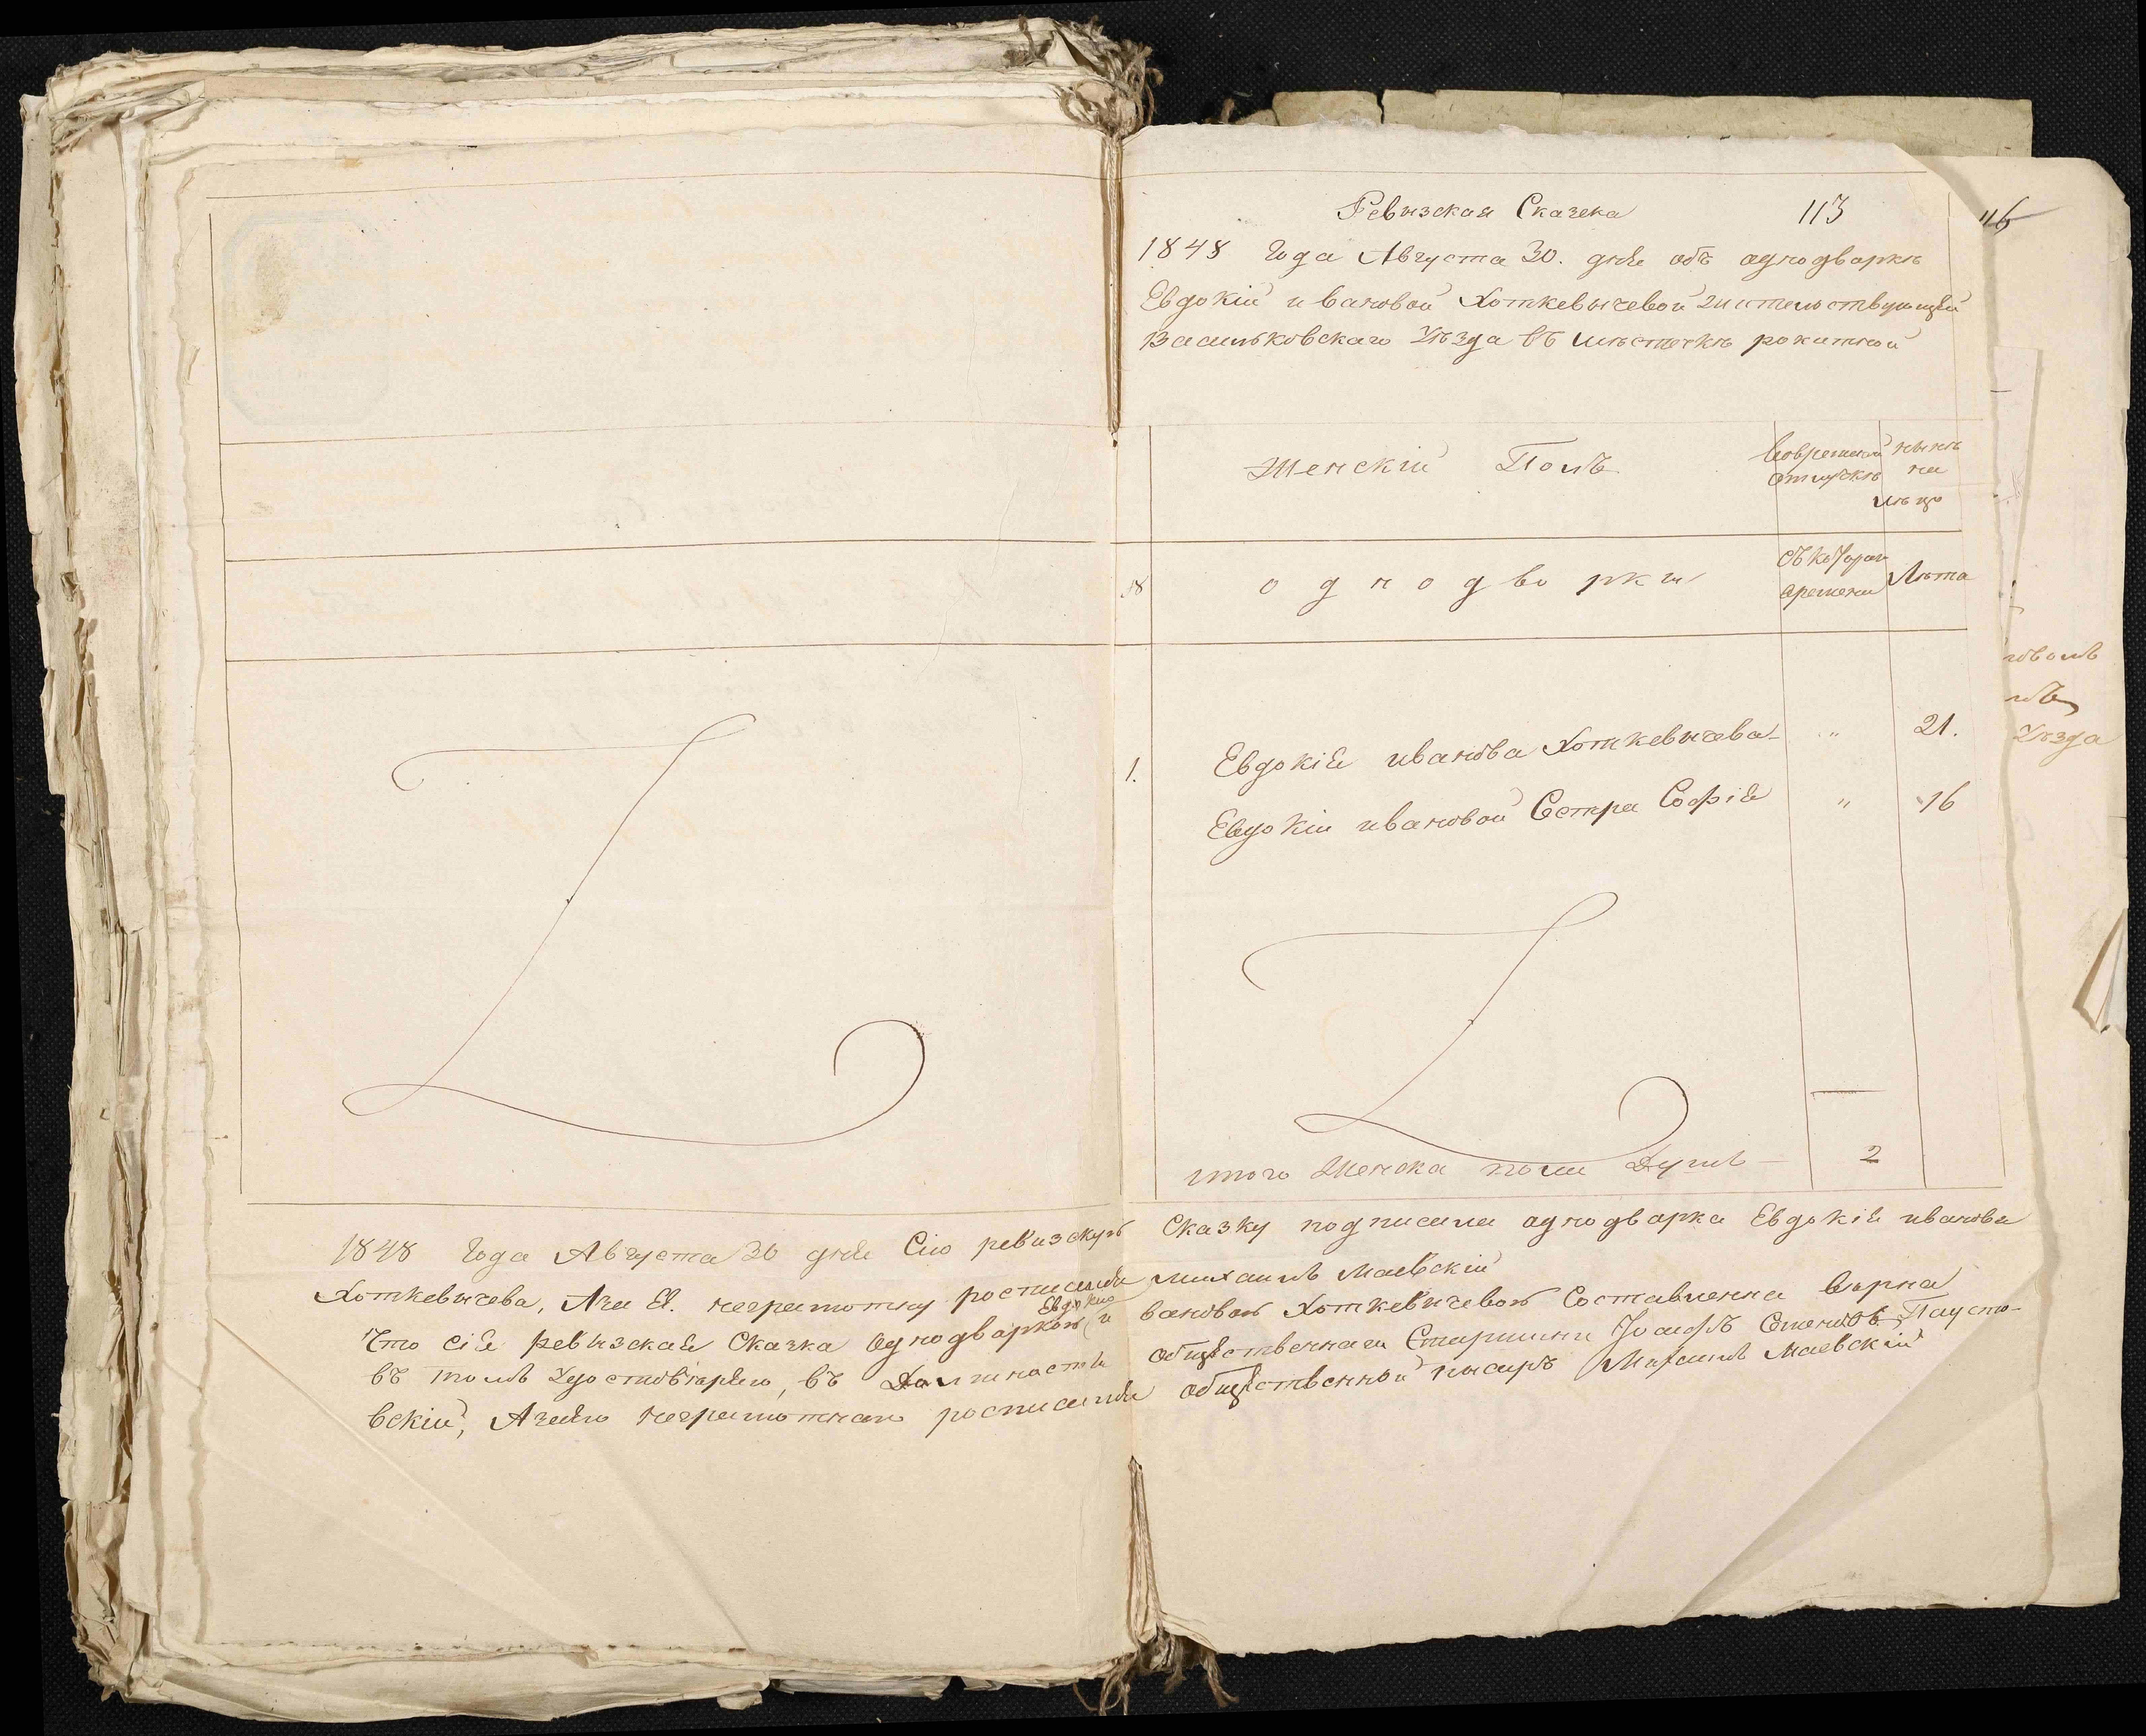 Ревизская Сказека 113
116
1848 Года Августа 30. дня объ однодваркѣ
Евдокіи ивановой Хоткевичевой жительствующей
Васильковскаго Уѣзда въ мѣстечкѣ рокитной
Женскій Полъ
Вовременой отлучкѣ
нынѣ на лицо
№
однодворки
Съ котораго времени
Лѣта
1. Евдокія иванова Хоткевичева " 21.
Евдокіи ивановой Сестра Софія " 16
итого Женска пола Душъ 2
Уѣзда
1848 Года Августа 30 дня Сію ревизскую Сказку подписала однодварка Евдокія иванова
Хоткевичева, А за Ея неграмотну росписался Михаилъ Маевскій
Евдокию
Что сія ревизская Сказка Однодваркою ивановою Хоткевичевою Составленна вѣрна
въ томъ Удостовѣряю, въ Должности общественнаго Старшины Іосифъ Семеновъ Паусто-
вскій, А заего неграмотнаго росписался общественной писарь Михаилъ Маевскій